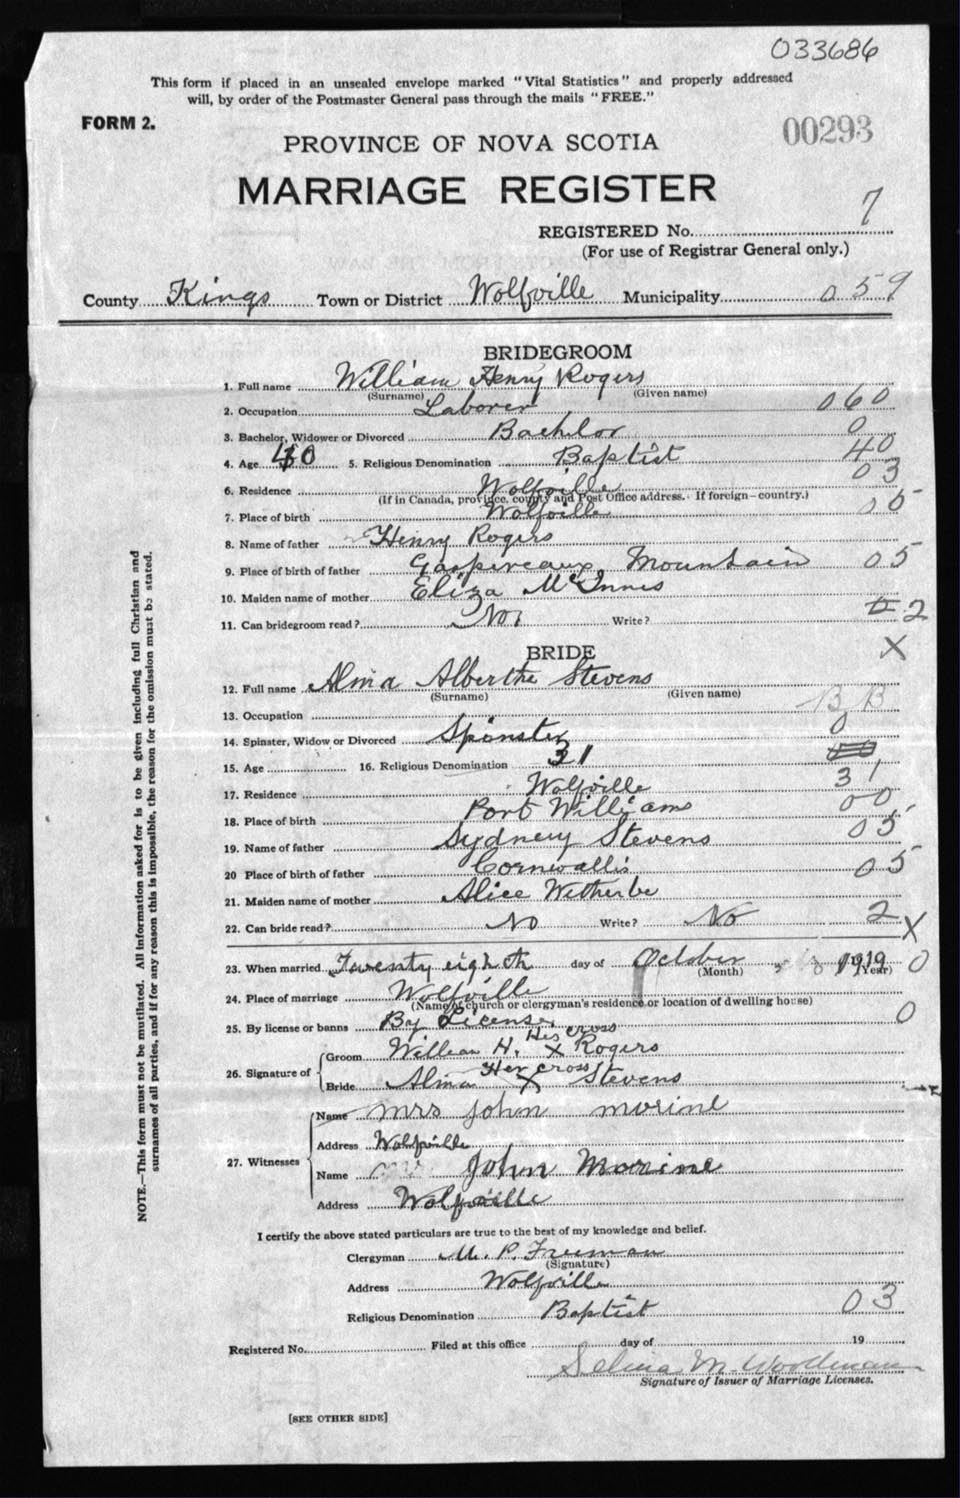 033686
This form if placed in an unsealed envelope marked "Vital Statistics" and properly addressed
will, by order of the Postmaster General pass through the mails "FREE."
FORM 2.
00293
PROVINCE OF NOVA SCOTIA
MARRIAGE REGISTER
7
REGISTERED No.
(For use of Registrar General only.)
County Kings Town or District Wolfville Municipality 059
BRIDEGROOM
1. Full name William Henry Rogers
(Surname) (Given name)
2. Occupation Laborer 060
3. Bachelor, Widower or Divorced Bachelor 0
4. Age 40 5. Religious Denomination Baptist 40
03
6. Residence Wolfville
(If in Canada, province, county and Post Office address. If foreign—country.)
7. Place of birth Wolfville 05
8. Name of father Henry Rogers
9. Place of birth of father Gaspereaux Mountain 05
10. Maiden name of mother Eliza McInnis
11. Can bridegroom read? No Write? 2
BRIDE X
12. Full name Alma Alberthe Stevens
(Surname) (Given name)
13. Occupation BB
14. Spinster, Widow or Divorced Spinster 0
15. Age 16. Religious Denomination 31
17. Residence Wolfville 31
18. Place of birth Port Williams 00
19. Name of father Sydney Stevens 05
20 Place of birth of father Cornwallis 05
21. Maiden name of mother Alice Wetherbe
22. Can bride read? No Write? No 2 X
23. When married Twenty eighth day of October 1919 0
(Month) (Year)
24. Place of marriage Wolfville
(Name of church or clergyman's residence or location of dwelling house)
25. By license or banns By License 0
His cross
Groom William H. X Rogers
26. Signature of
Her cross
Bride Alma X Stevens
Name Mrs John Morine
Address Wolfville
27. Witnesses
Name Mr John Morine
Address Wolfville
I certify the above stated particulars are true to the best of my knowledge and belief.
Clergyman M. P. Freeman
(Signature)
Address Wolfville
Religious Denomination Baptist 03
Registered No. Filed at this office day of 19
Selina M. Woodman
Signature of Issuer of Marriage Licenses.
[SEE OTHER SIDE]
NOTE.—This form must not be mutilated. All information asked for is to be given including full Christian and
surnames of all parties, and if for any reason this is impossible, the reason for the omission must be stated.